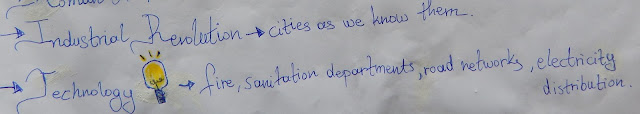 → Industrial Revolution → cities as we know them.
→ Technology → fire, sanitation departments, road networks, electricity
distribution.